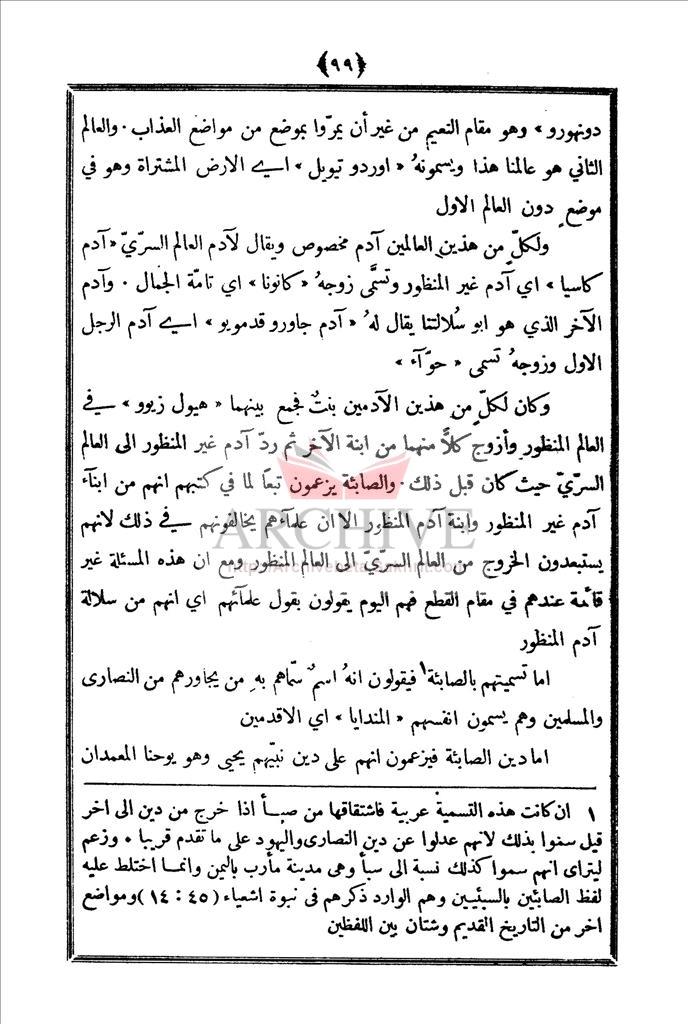 ﴿٩٩﴾
دونهورو » وهو مقام النعيم من غير أن يمرّوا بموضع من مواضع العذاب · والعالم
الثاني هو عالمنا هذا ويسمونهُ « اوردو تيوبل » اي الارض المشتراة وهو في
موضعٍ دون العالم الاول
ولكلٍّ من هذين العالمين آدم مخصوص ويقال لآدم العالم السرّيّ « آدم
كاسيا » اي آدم غير المنظور وتسمَّى زوجهُ « كانونا » اي تامّة الجمال · وآدم
الآخر الذي هو ابو سُلالتنا يقال لهُ « آدم جاورو قدمويو » اي آدم الرجل
الاول وزوجهُ تسمى « حوّآء »
وكان لكلٍّ من هذين الآدمين بنتٌ فجمع بينهما « هيول زيوو » في
العالم المنظور وأزوج كلاًّ منهما من ابنة الآخر ثم ردّ آدم غير المنظور الى العالم
السرّيّ حيث كان قبل ذلك · والصابئة يزعمون تبعًا لما في كتبهم انهم من ابنآء
آدم غير المنظور وابنة آدم المنظور الا ان علمآءهم يخالفونهم في ذلك لانهم
يستبعدون الخروج من العالم السرّيّ الى العالم المنظور ومع ان هذه المسئلة غير
قائمة عندهم في مقام القطع فهم اليوم يقولون بقول علمآئهم اي انهم من سلالة
آدم المنظور
اما تسميتهم بالصابئة١ فيقولون انهُ اسمٌ سمّاهم بهِ من يجاورهم من النصارى
والمسلمين وهم يسمون انفسهم « المندايا » اي الاقدمين
اما دين الصابئة فيزعمون انهم على دين نبيّهم يحيى وهو يوحنا المعمدان
١ ان كانت هذه التسمية عربية فاشتقاقها من صبأ اذا خرج من دين الى اخر
قيل سموا بذلك لانهم عدلوا عن دين النصارى واليهود على ما تقدم قريبا · وزعم
ليتراى انهم سموا كذلك نسبة الى سبأ وهى مدينة مأرب باليمن وانما اختلط عليه
لفظ الصابئين بالسبئيين وهم الوارد ذكرهم فى نبوة اشعياء ( ٤٥ : ١٤ ) ومواضع
اخر من التاريخ القديم وشتان بين اللفظين
ARCHIVE